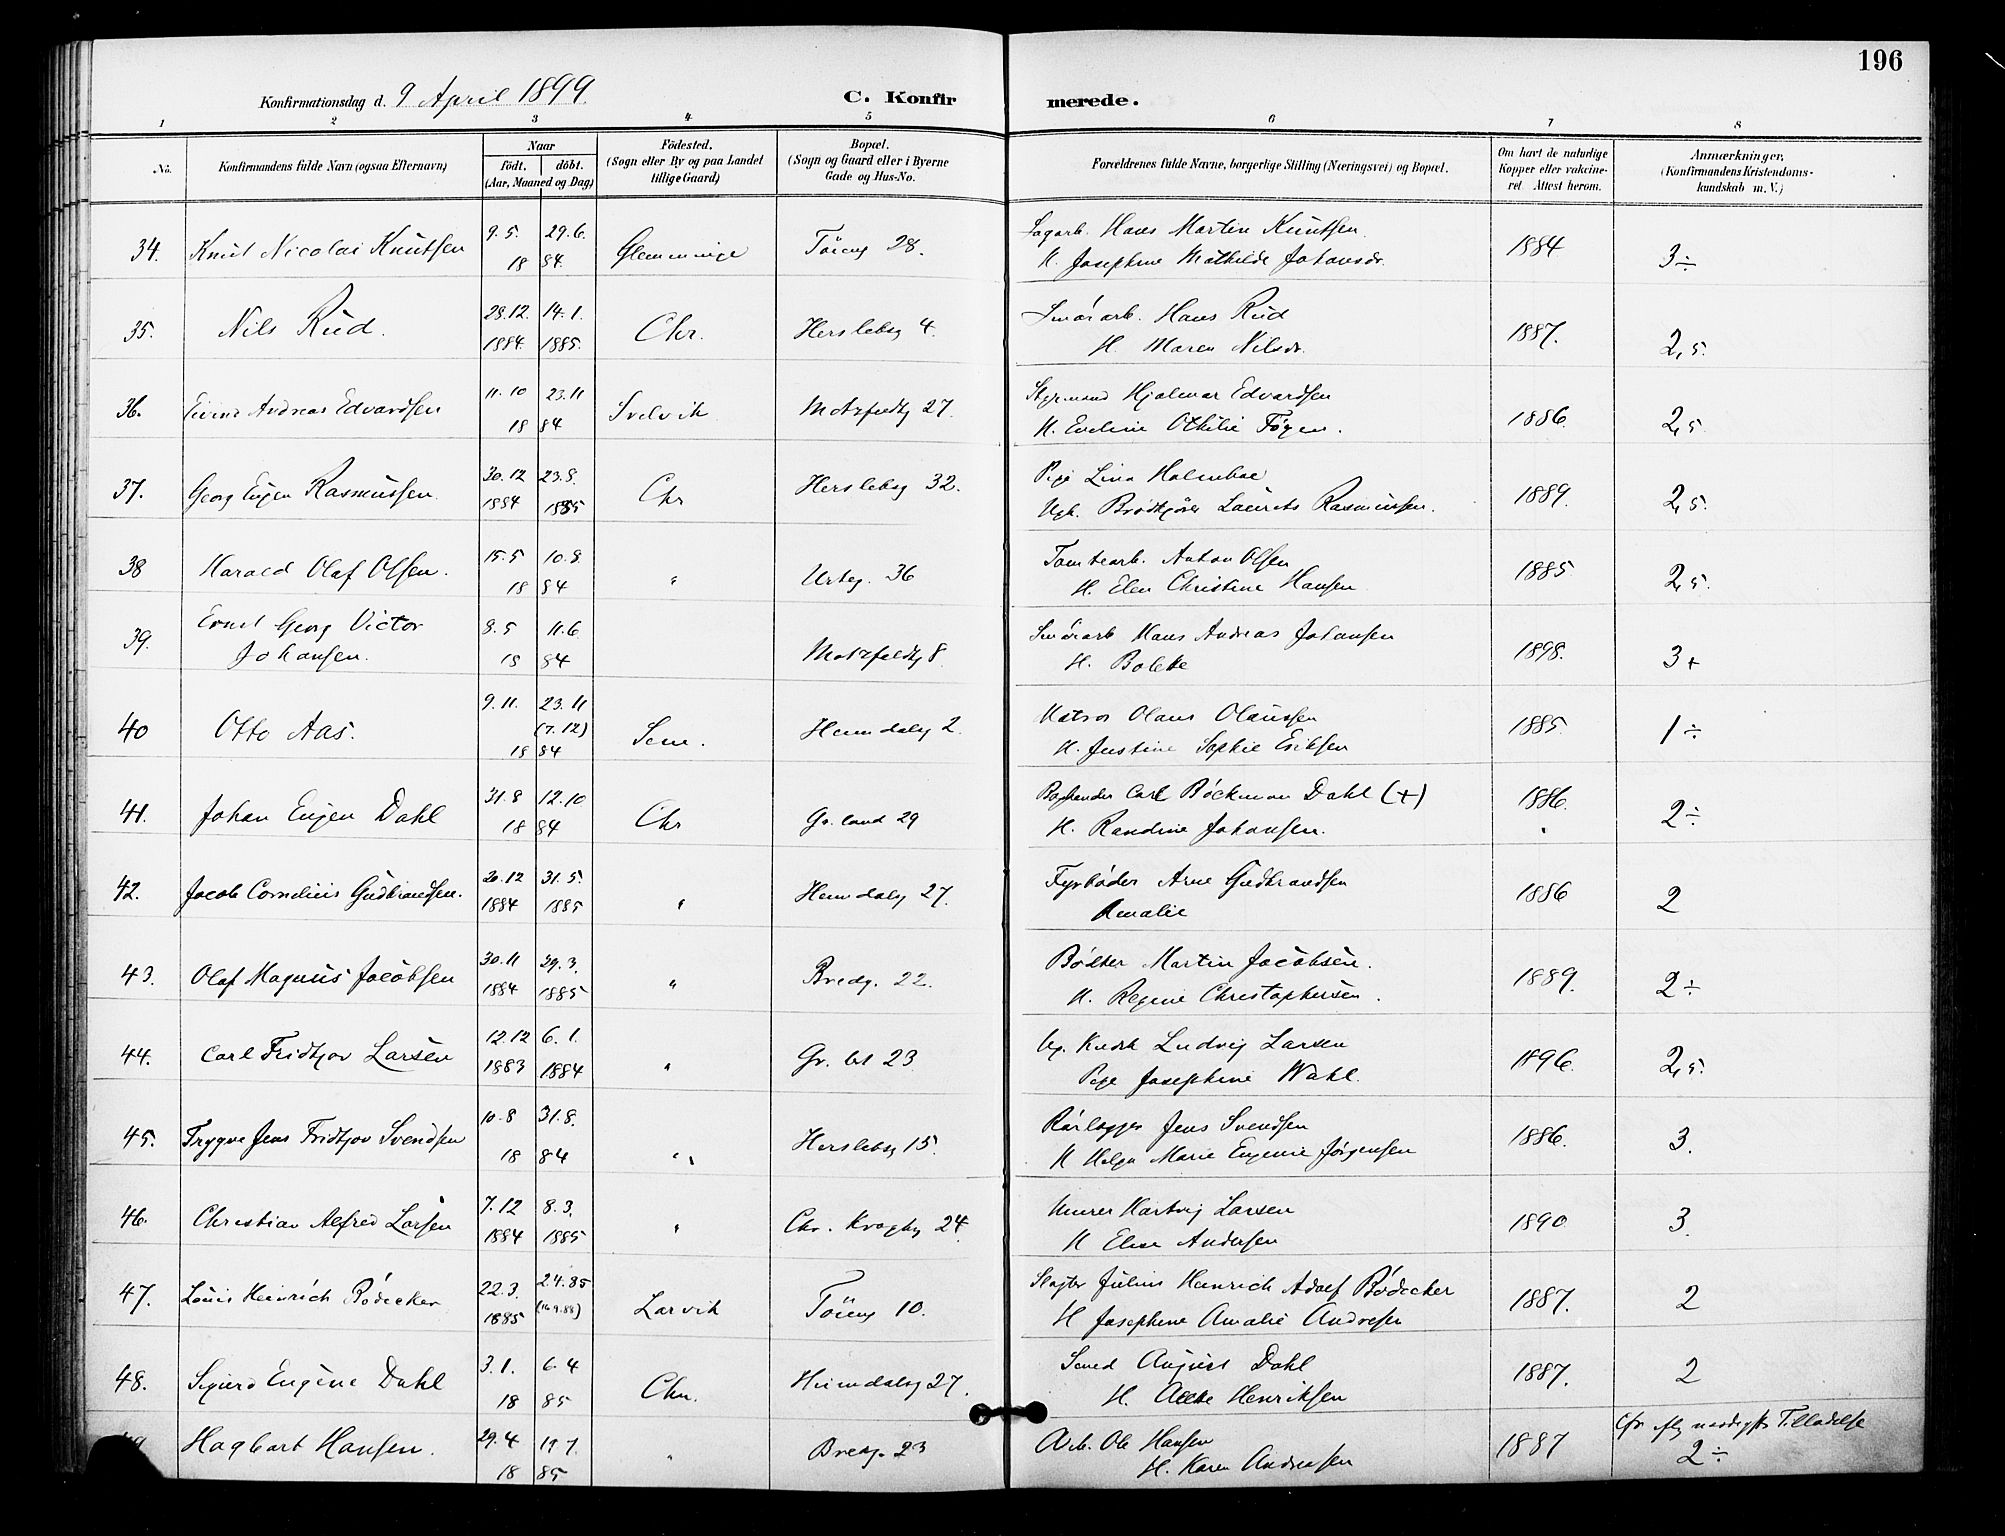 196
Konfirmationsdag d. 9 April 1899. C. Konfirmerede.
1 2 3 4 5 6 7 8
No. Konfirmandens fulde Navn (ogsaa Efternavn) Naar födt, döbt. (Aar, Maaned og Dag) Födested. (Sogn eller By og paa Landet tillige Gaard) Bopæl. (Sogn og Gaard eller i Byerne Gade og Hus-No. Forældrenes fulde Navne, borgerlige Stilling (Næringsvei) og Bopæl. Om havt de naturlige Kopper eller vakcineret. Attest herom. Anmærkninger, (Konfirmandens Kristendomskundskab m. V.)
34. Knut Nicolai Knutsen 9.5. 29.6. 18 84. Glemminge Töieng 28. Sagarb. Hans Martin Knutsen H. Josephine Mathilde Johansdr. 1884 3÷
35. Nils Rud. 28.12. 1884. 14.1. 1885. Chr. Herslebsg 4. Smørarb. Hans Rud H. Maren Nilsdr. 1887. 2,5.
36. Eivind Andreas Edvardsen 11.10 23.11 18 84 Svelvik Motzfeldtg 27. Styrmand Hjalmar Edvardsen H. Eveline Othilie Fögen. 1886. 2,5
37. Georg Eugen Rasmussen. 30.12 1884 23.8. 1885 Chr Herslebsg 32. Pige Lina Holmboe Ugk. Brødkjører Laurits Rasmussen. 1889. 2,5.
38 Harald Olaf Olsen. 15.5 10.8. 18 84 " Urteg. 36 Tomtearb. Anton Olsen H. Elen Christine Hansen 1885 2,5.
39. Ernst Georg Victor Johansen. 8.5 11.6. 18 84 Motzfeldtg 8. Smørarb Hans Andreas Johansen H. Bolette 1898. 3+
40 Otto Aas. 9.11. 23.11 (7.12) 18 84 Sem. Heimdalsg 2. Matros Olaus Olaussen H. Justine Sophie Eriksen 1885. 1÷
41. Johan Eugen Dahl 31.8 12.10 18 84 Chr Gr.land 29 Carl Böckman Dahl (+) H. Randine Johansen. 1886. 2÷
42. Jacob Cornelius Gudbrandsen. 20.12 1884 31.5. 1885 " Heimdalsg 27. Fyrbøder Arne Gudbrandsen Amalie 1886 2
43. Olaf Magnus Jacobsen 30.11 1884 29.3. 1885 " Bredg. 22. Bødker Martin Jacobsen. H. Regine Christophersen. 1889. 2÷
44. Carl Fridtjov Larsen 12.12 1883 6.1. 1884 " Gr. 23 Ug. Kudsk Ludvig Larsen Pige Josephine Wahl. 1896. 2,5.
45. Trygve Jens Fridtjov Svendsen 10.8 31.8. 18 84 " Herslebsg 15. Rørlægger Jens Svendsen H Helga Marie Eugenie Jørgensen 1886. 3.
46. Christian Alfred Larsen 7.12 1884 8.3. 1885 " Chr. Kroghg 24. Murer Hartvig Larsen H Elise Andersen 1890 3.
47. Louis Heinrich Bödecker 22.3. 1885 24.85 Larvik Töieng 10. Slagter Julius Heinrich Adolf Bödecker H Josephine Amalie Andresen 1887. 2
48. Sigurd Eugene Dahl 3.1. 6.4 18 85 Chr. Heimdalsg 27. Smed August Dahl H. Alette Henriksen 1887. 2
Hagbart Hansen. 29.4 19 7. 18 85 " Bredg. 23 Arb. Ole Hansen H. Karen Andresen 1887 Tilladelse 2÷